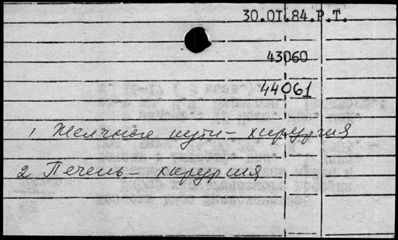 30.01.84.Р.Т.
43060
44061
1 Желчные пути – хирургия
2 Печень – хирургия